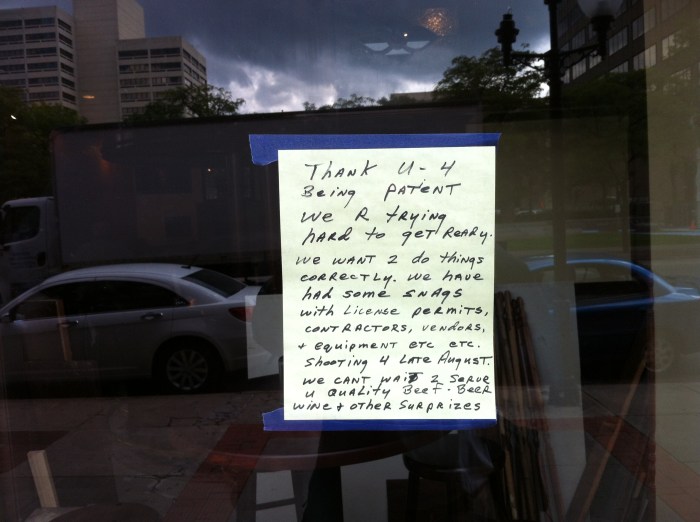 THANK U-4
Being PATENT
We R TRYing
hard to get Ready.
We WANT 2 do things
CORRECTLY. We have
had some SNAGS
with License permits,
CONTRACTORS, vendors,
+ equipment etc etc.
Shooting 4 LATE August.
We CANT WAIT 2 Serve
U QUALITY Beef - Beer
Wine + OTHER SURPRIZES